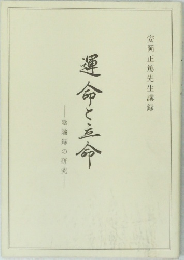 安岡正篤先生講録
運命と立命
―陰隲録の研究―